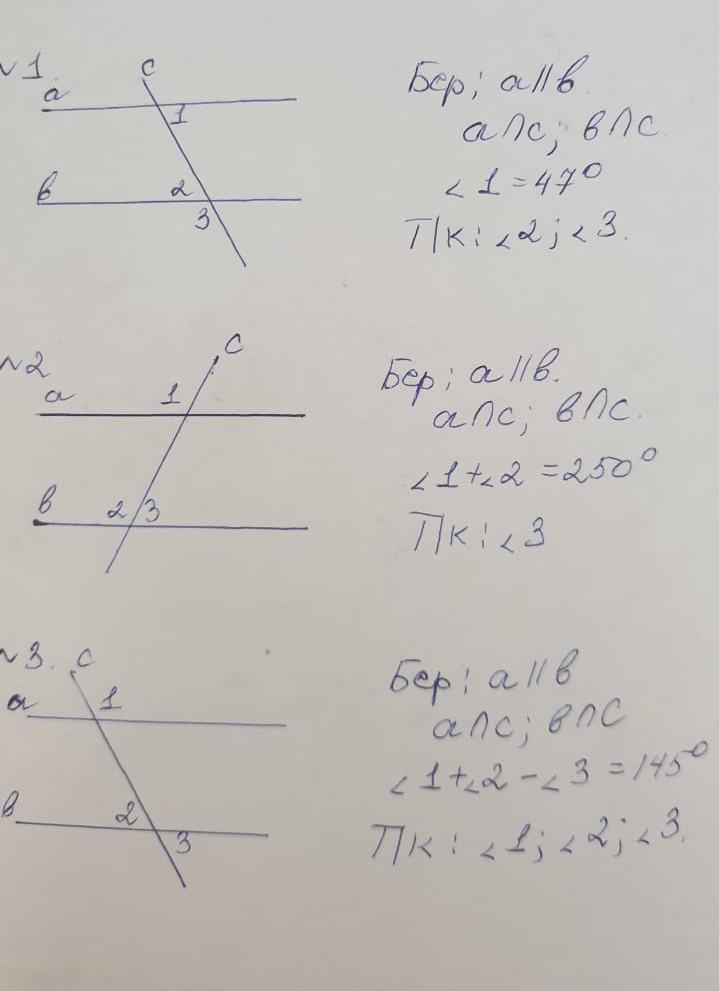 №1.
c
a
1
b
2
3
Бер; a∥b
a∩c; b∩c.
∠1=47°
Т/к: ∠2; ∠3.
№2
c
a
1
b
2
3
Бер; a∥b.
a∩c; b∩c.
∠1+∠2=250°
Т/к: ∠3
№3.
c
a
1
b
2
3
Бер; a∥b
a∩c; b∩c
∠1+∠2-∠3=145°
Т/к: ∠1; ∠2; ∠3.